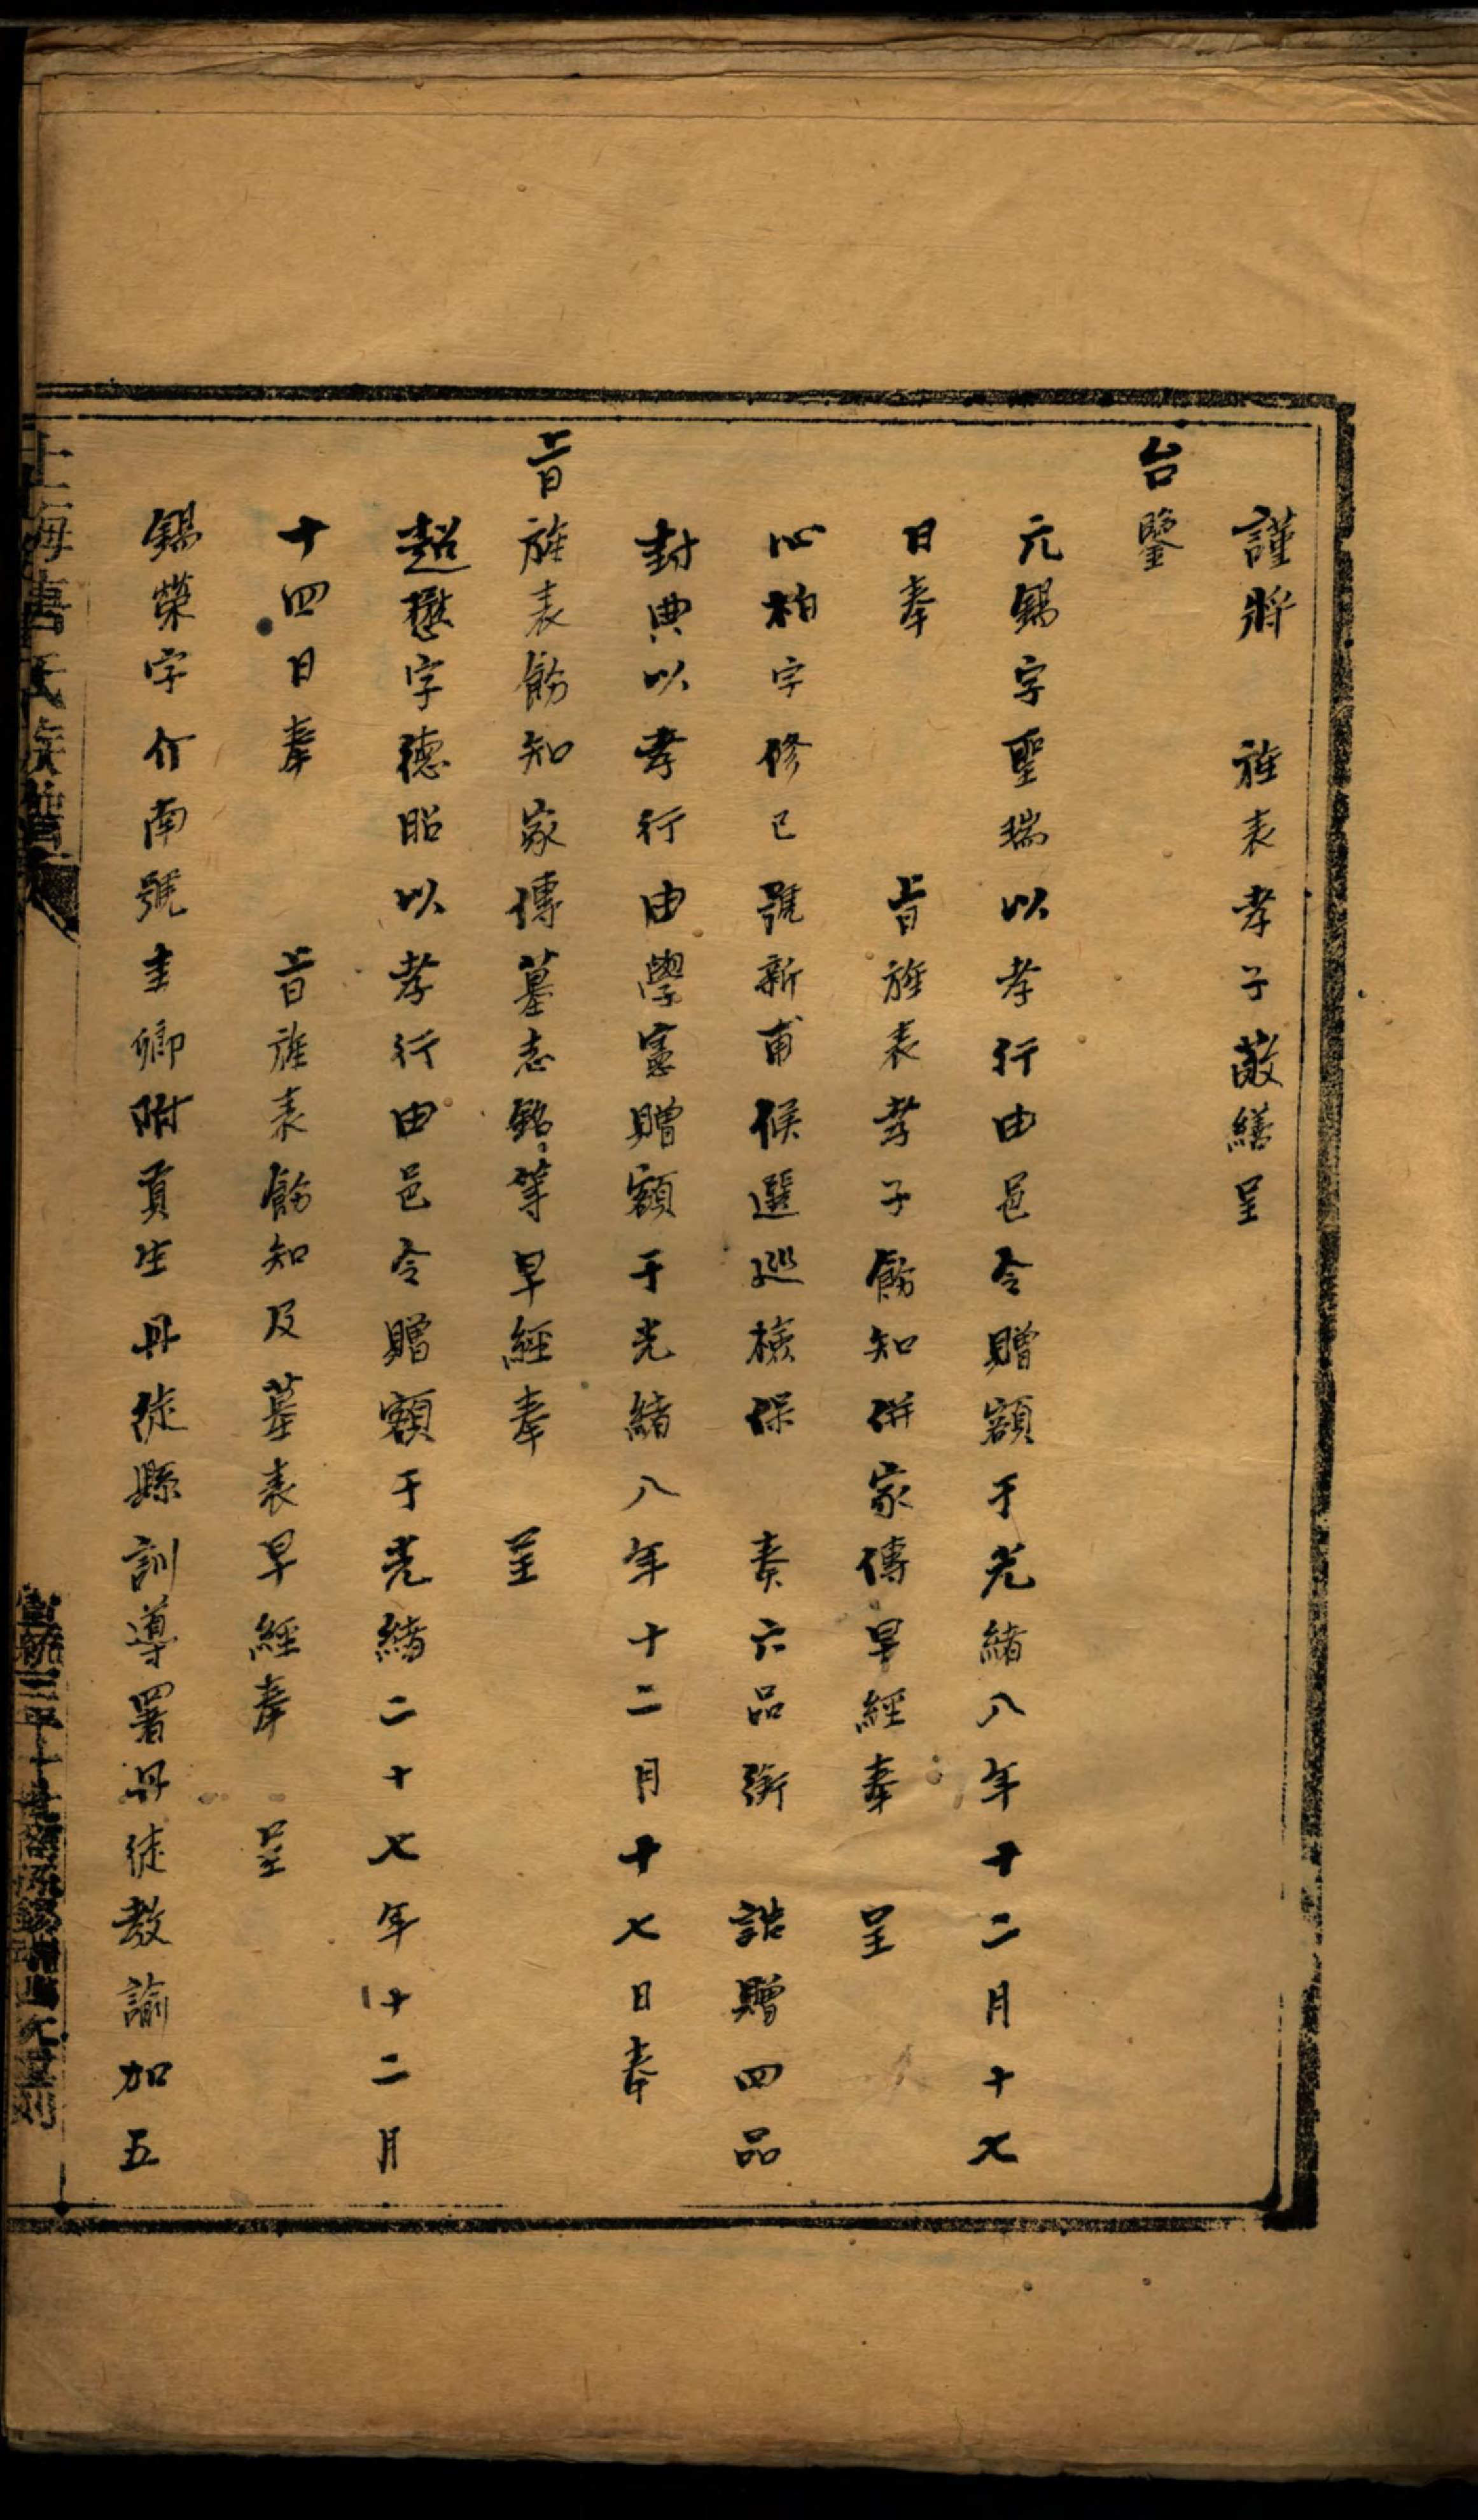 謹將　旌表孝子敬繕呈
台鑒
元錫字聖瑞以孝行由邑令贈額于光緒八年十二月十七
日奉　旨旌表孝子飭知併家傳早經奉　呈
心柏字修己號新甫候選巡檢保　奏六品銜　誥贈四品
封典以孝行由學憲贈額于光緒八年十二月十七日奉
旨旌表飭知家傳墓志銘等早經奉　呈
超懋字德昭以孝行由邑令贈額于光緒二十七年十二月
十四日奉　旨旌表飭知及墓表早經奉　呈
錫榮字介南號圭卿附貢生丹徒縣訓導署丹徒教諭加五
上海唐氏族譜
宣統三年